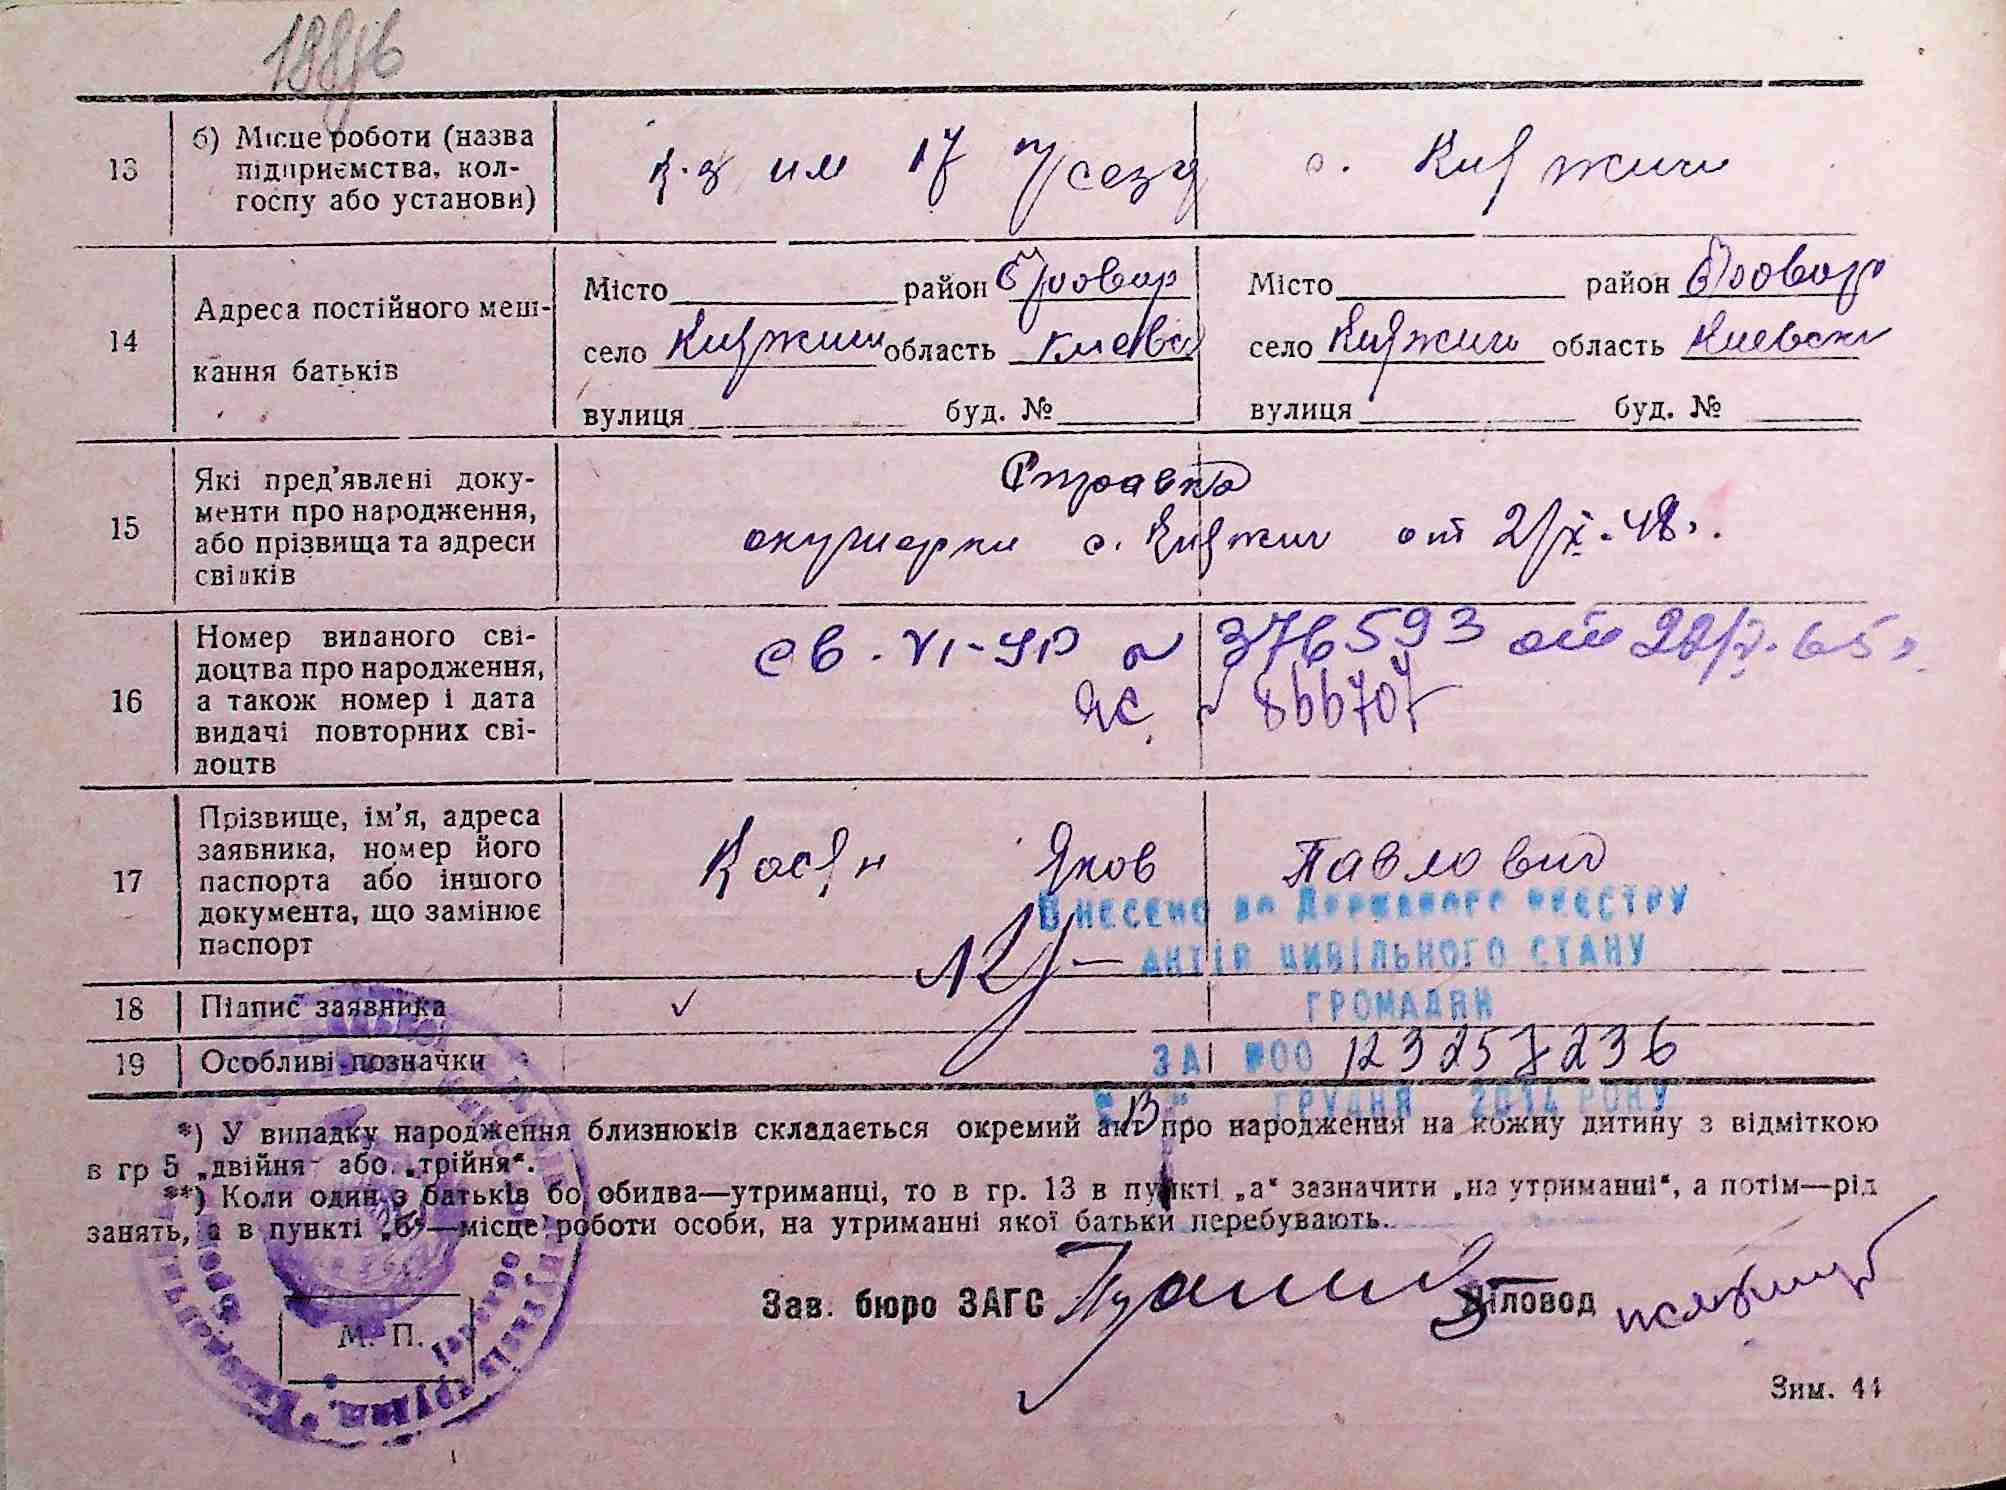 188/6
13 б) Місце роботи (назва
підприємства, кол-
госпу або установи)
к-з им 17 п/сезд с. Княжичи
14 Адреса постійного меш-
кання батьків
Місто район Бровар Місто район Бровар
село Княжичи область Киевск село Княжичи область Киевск
вулиця буд. № вулиця буд. №
15 Які пред'явлені доку-
менти про народження,
або прізвища та адреси
свідків
Справка
акушерки с. Княжич от 2/IX-48г.
16 Номер виданого сві-
доцтва про народження,
а також номер і дата
видачі повторних сві-
доцтв
св. VI-УР № 376593 от 65г.
ЯС № 866707
17 Прізвище, ім'я, адреса
заявника, номер його
паспорта або іншого
документа, що замінює
паспорт
Яков Павлович
Внесено до Державного реєстру
актів цивільного стану
громадян
18 Підпис заявника ✓
за №00 123257236
19 Особливі позначки
"13" грудня 2014 року
*) У випадку народження близнюків складається окремий акт про народження на кожну дитину з відміткою
в гр 5 „двійня" або „трійня".
**) Коли один з батьків бо обидва—утриманці, то в гр. 13 в пункті „а" зазначити „на утриманні", а потім—рід
занять, а в пункті „б"—місце роботи особи, на утриманні якої батьки перебувають.
Зав. бюро ЗАГС Діловод
М. П.
Зим. 44